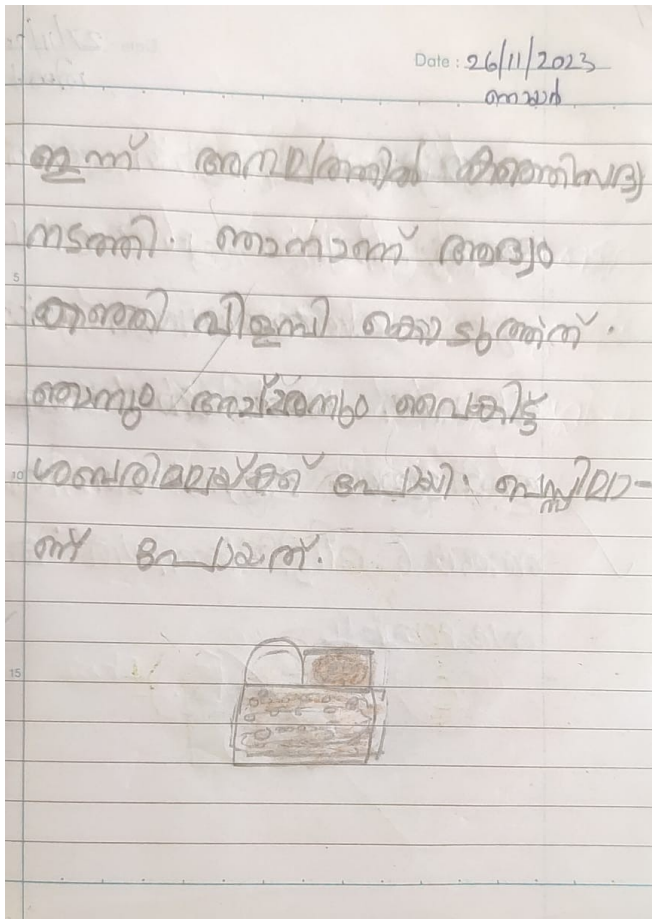 Date : 26/11/2023
ഞായർ
ഇന്ന് അമ്പലത്തിൽ കഞ്ഞിസദ്യ
നടത്തി. ഞാനാണ് ആദ്യം
കഞ്ഞി വിളമ്പി കൊടുത്തത്.
ഞാനും അച്ഛനും വൈകിട്ട്
ശബരിമലയ്ക്ക് പോയി. ബസ്സിലാ-
ണ് പോയത്.
5
10
15